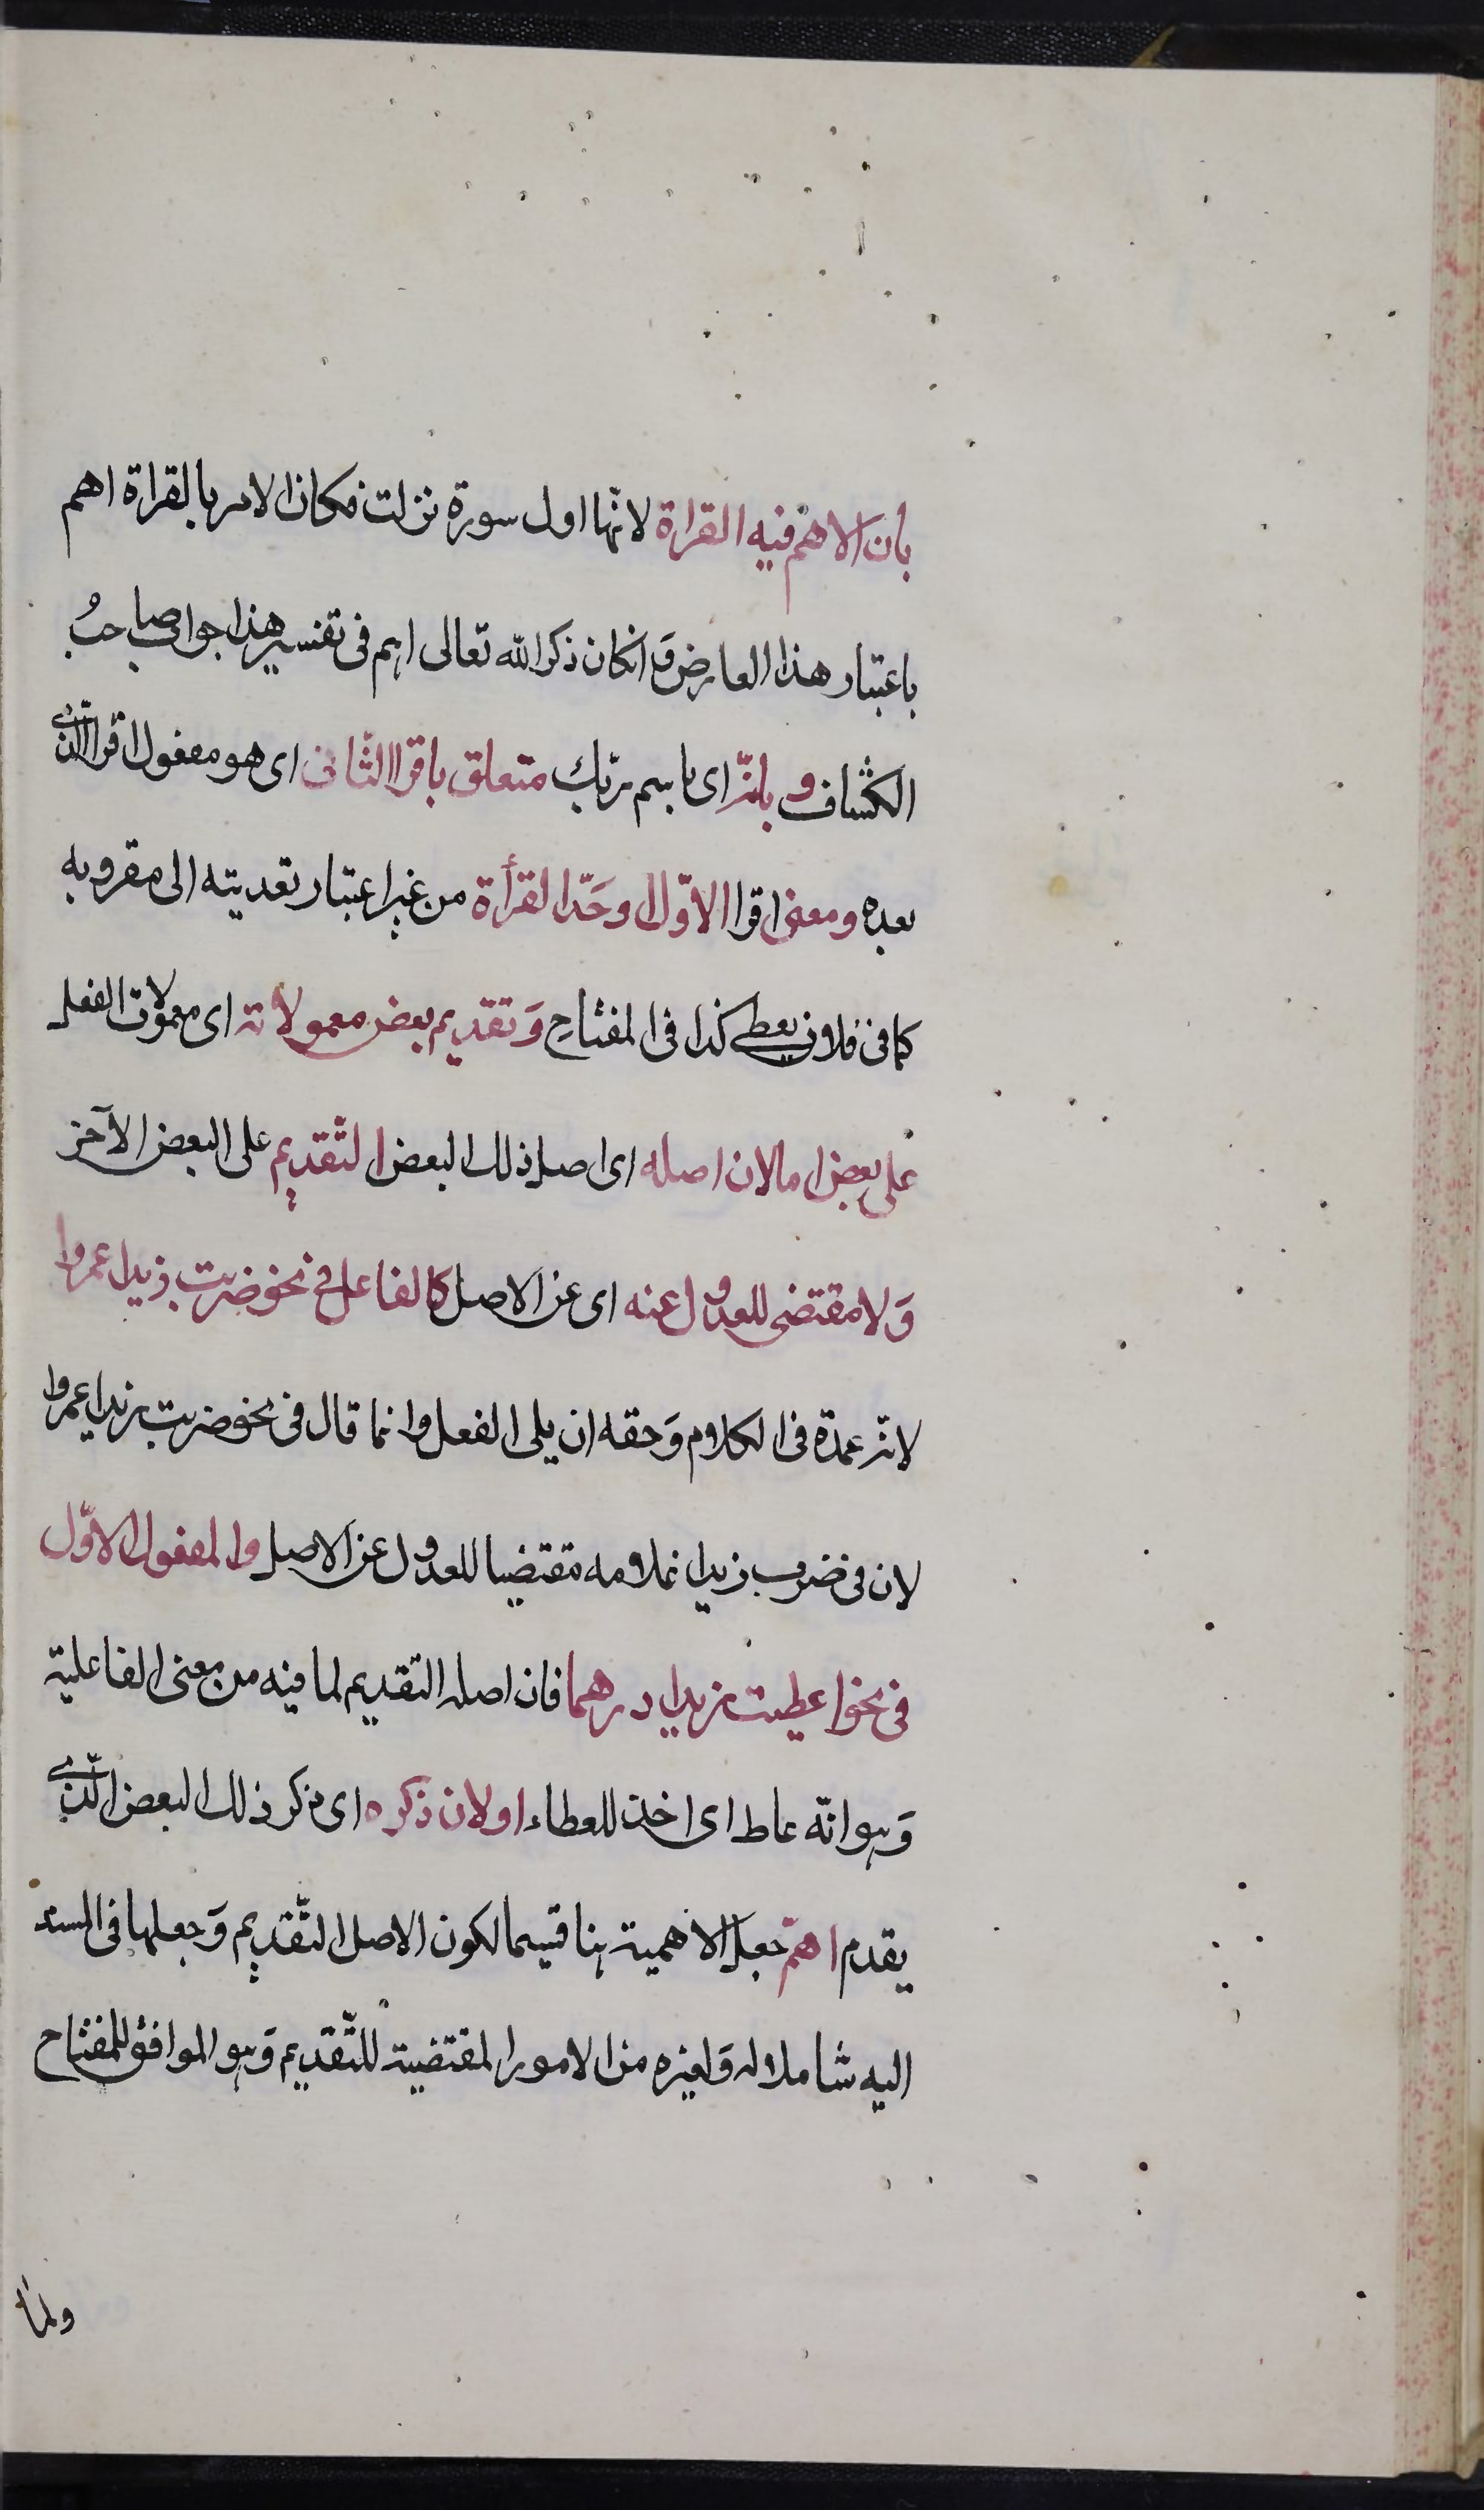 بان الاهم فيه القراة لانها اول سورة نزلت فكان الامر بالقراة اهم
باعتبار هذا العارض وَانكان ذكر الله تعالى اهم فى نفسه هذا جواب صاحبُ
الكشاف و بانّه اى باسم ربّك متعلق باقرا الثّانى اى هو مفعول اقرا الّذى
بعده ومعنى اقرا الاوّل اوحَدّ القرأة من غير اعتبار تعديته الى مقرو به
كما فى فلان يعطى كذا فى المفتاح وَتقديم بعض معمولاته اى معمولات الفعل
على بعض اما لان اصله اى اصل ذلك البعض التّقديم على البعض الآخر
وَلا مقتضى للعدول عنه اى عن الاصل كالفاعل فى نحو ضربت زيدا عمروا
لانّه عمدة فى الكلام وَحقه ان يلى الفعل وانما قال فى نحو ضربت زيدا عمروا
لان فى ضرب زيدا غلامه مقتضيا للعدول عن الاصل والمفعول الاوّل
فى نحو اعطيت زيدا درهما فان اصله التقديم لما فيه من معنى الفاعلية
وَهو انّه عاط اى اخذ للعطاء او لان ذكره اى ذكر ذلك البعض الّذى
يقدم اهمّ جعل الاهمية هنا قسيما لكون الاصل التّقديم وَجعلها فى المسند
اليه شاملا له وَلغيره من الامور المقتضية للتّقديم وَهو الموافق للمفتاح
ولما